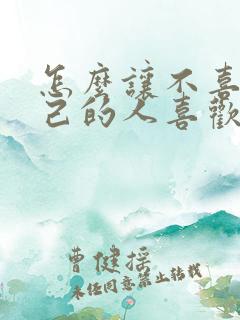 怎麼讓不喜
己的人喜歡
曹健摇
未经同意禁止转载